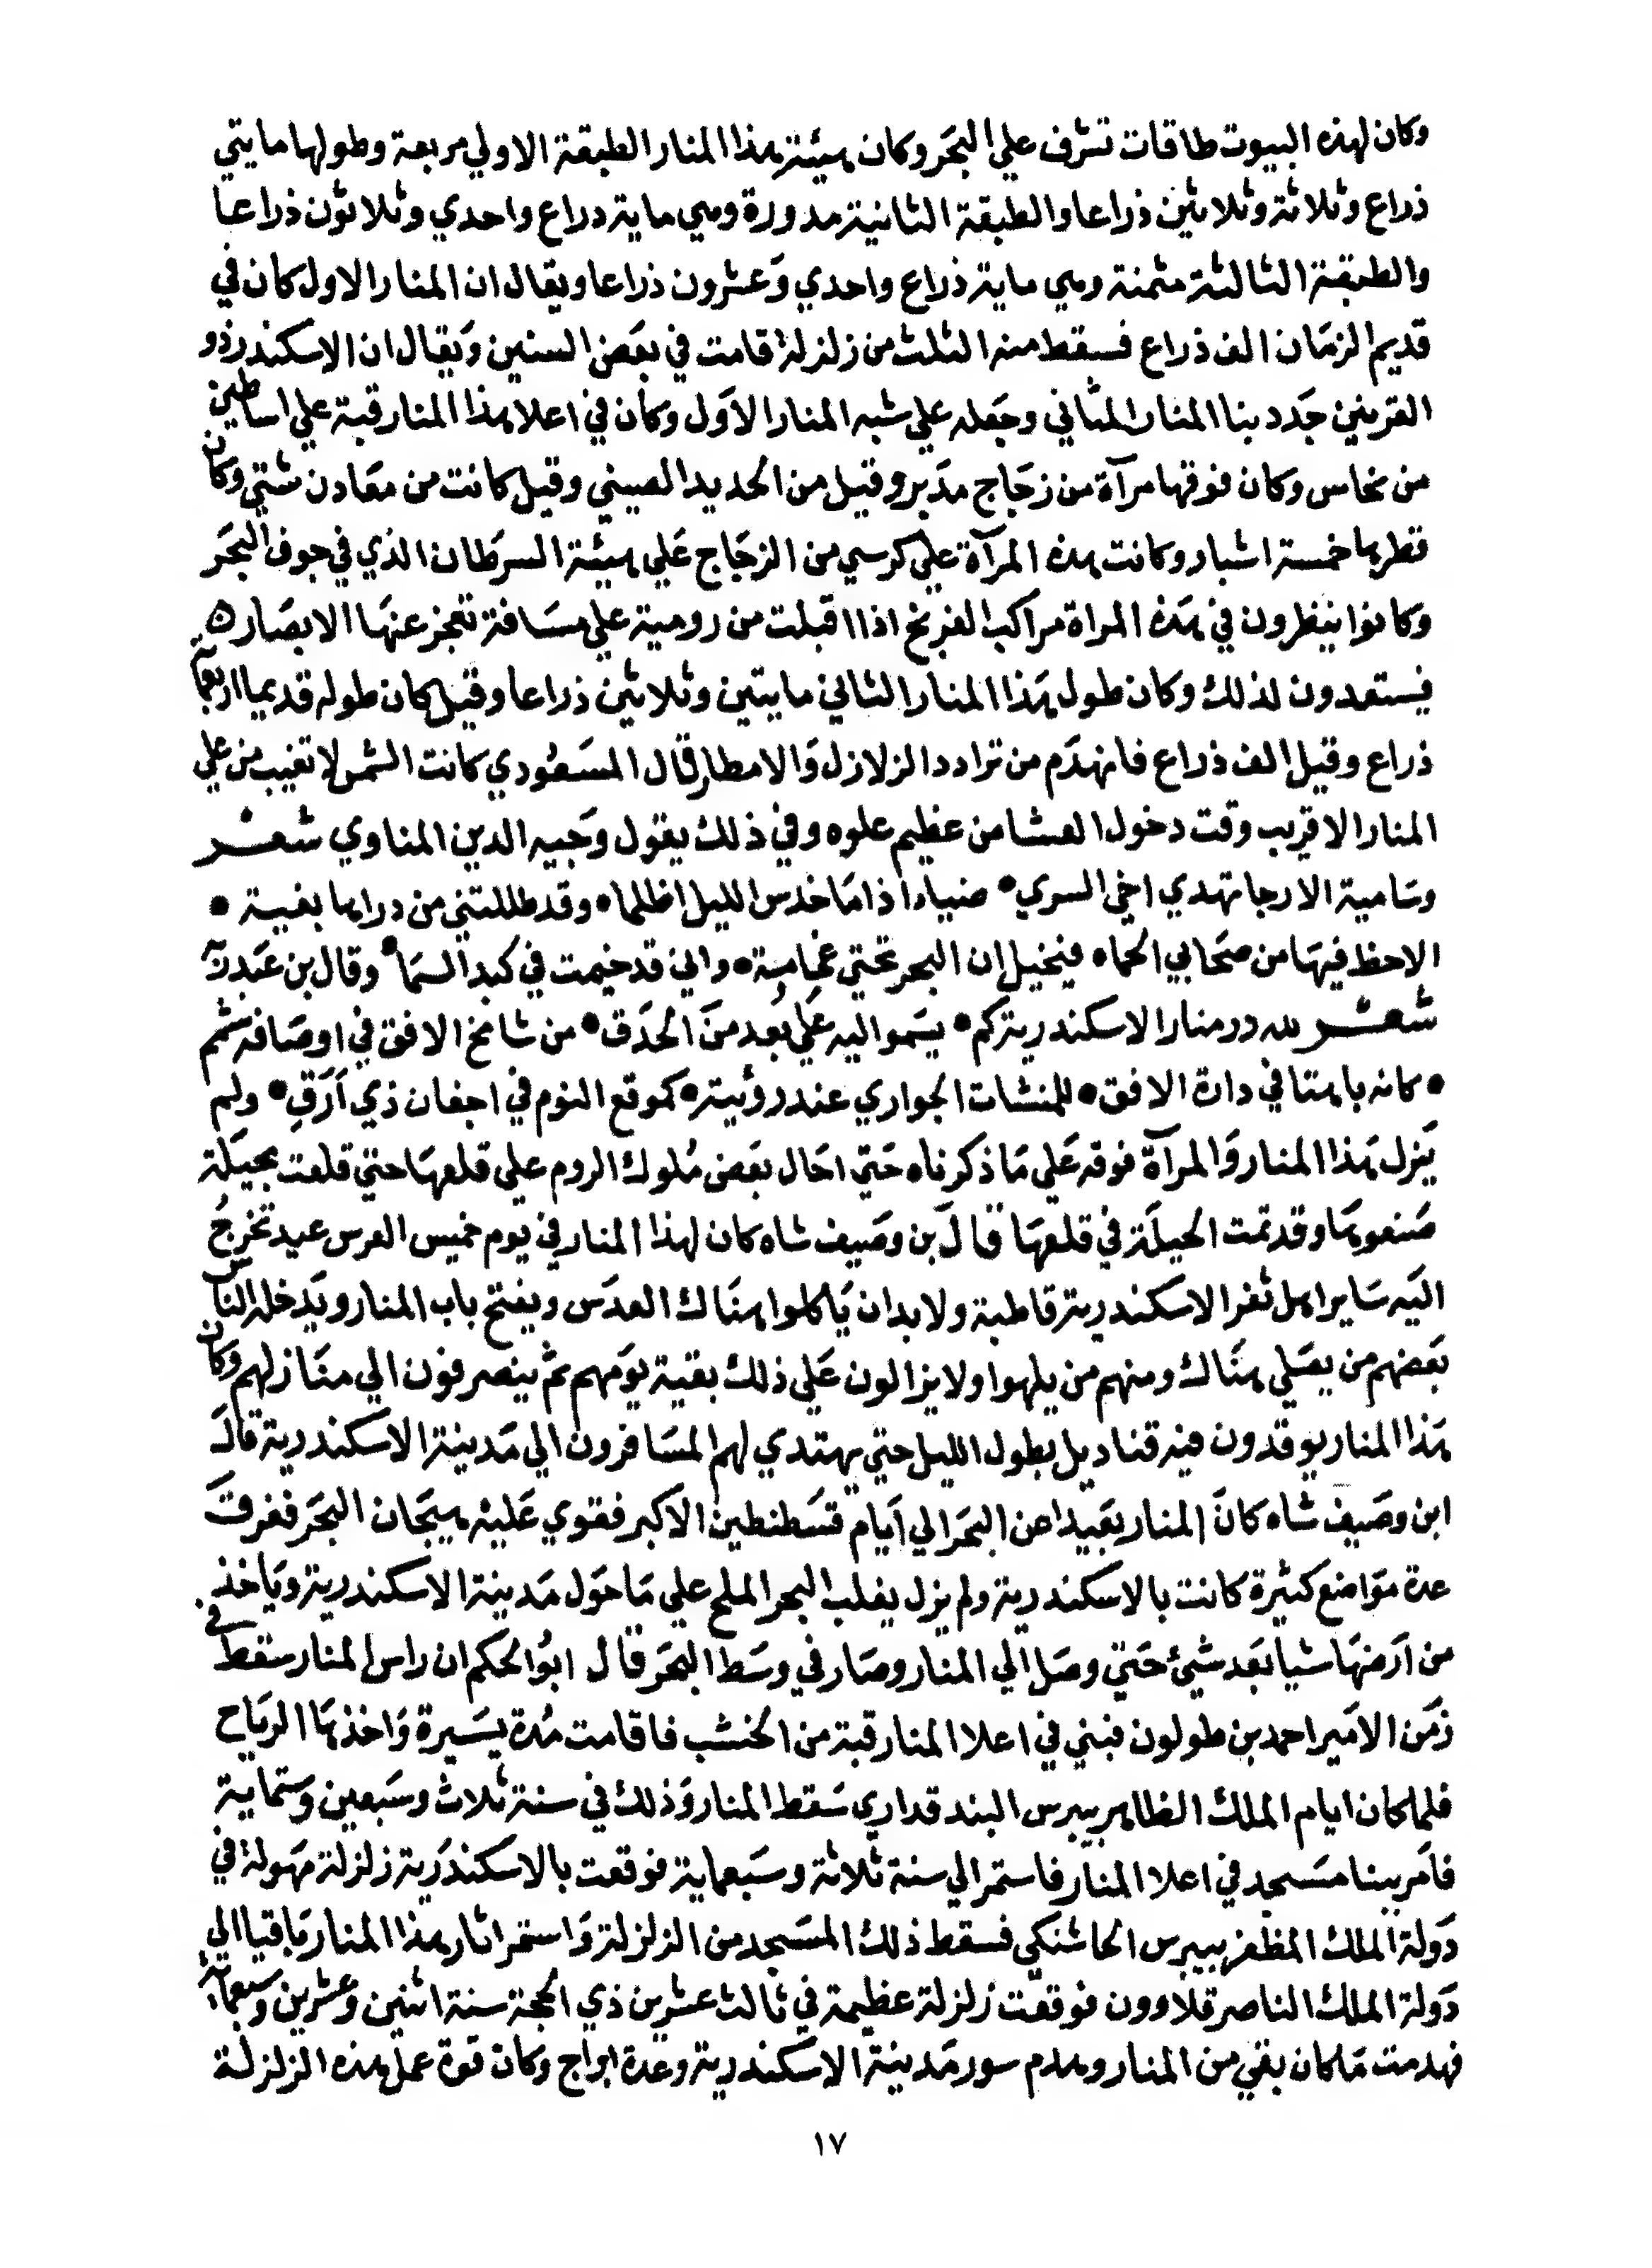 وكان لهذه البيوت طاقات تشرف علي البحر وكان هيئة هذا المنار الطبقة الاولي مربعة وطولها مايتي
ذراع وثلاثة وثلاثين ذراعا والطبقة الثانية مدورة وهي ماية دراع واحدي وثلاثون ذراعا
والطبقة الثالثة مثمنة وهي ماية ذراع واحدي وعشرون ذراعا ويقال ان المنار الاول كان في
قديم الزمان الف ذراع فسقط منه الثلث من زلزلة قامت في بعض السنين ويقال ان الاسكندر ذو
القرنين جدد بنا المنار الثاني وجعله علي شبه المنار الاول وكان في اعلا هذا المنار قبة علي اساطين
من نحاس وكان فوقها مرآة من زجاج مدبر وقيل من الحديد الصيني وقيل كانت من معادن شتي وكان
قطرها خمسة اشبار وكانت هذه المرآة علي كرسي من الزجاج علي هيئة السرطان الذي في جوف البحر
وكانوا ينظرون في هذه المراة مراكب الفرنج اذا اقبلت من رومية علي مسافة تعجز عنها الابصار ه
فيستعدون لذلك وكان طول هذا المنار الثاني مايتين وثلاثين ذراعا وقيل كان طوله قديما اربعماية
ذراع وقيل الف ذراع فانهدم من ترادد الزلازل والامطار قال المسعودي كانت الشمس لا تغيب من علي
المنار الا قريب وقت دخول العشا من عظيم علوه وفي ذلك يقول وجيه الدين المناوي شعر
وسامية الارجا تهدي اخي السري • ضياءا اذا ما خدس الليل اظلما • وقد ظللتني من دراها بغيبة •
الاحظ فيها من صحابي الحماه فيخيل ان البحر تحتي غمامة • واني قد خيمت في كبد السما • وقال بن عبدربه
شعر لله در منار الاسكندرية كم • يسموا اليه علي بعد من الحدق • من شامخ الافق في اوصافه شمم
• كانه باهتا في دارة الافق • للمنشات الجواري عند رؤيته • كموقع النوم في اجفان ذي ارق • ولم
يزل هذا المنار والمرآة فوقه علي ما ذكرناه حتي احال بعض ملوك الروم علي قلعها حتي قلعت بحيلة
صنعوها وقد تمت الحيلة في قلعها قال بن وصيف شاه كان لهذا المنار في يوم خميس العدس عيد تخرج
اليه ساير اهل ثغر الاسكندرية قاطبة ولابد ان ياكلوا هناك العدس ويفتح باب المنار ويدخله الناس
بعضهم من يصلي هناك ومنهم من يلهوا ولا يزالون علي ذلك بقية يومهم ثم ينصرفون الي منازلهم وكان
هذا المنار يوقدون فيه قناديل بطول الليل حتي يهتدي لهم المسافرون الي مدينة الاسكندرية قال
ابن وصيف شاه كان المنار بعيدا عن البحر الي ايام قسطنطين الاكبر فقوي عليه هيجان البحر فغرق
عدة مواضع كثيرة كانت بالاسكندرية ولم يزل يغلب البحر الملح علي ما حول مدينة الاسكندرية وياخذ
من ارضها شيا بعد شيئ حتي وصل الي المنار وصار في وسط البحر قال ابو الحكم ان راس المنار سقط في
زمن الامير احمد بن طولون فبني في اعلا المنار قبة من الخشب فاقامت مدة يسيرة واخذها الرياح
فلما كان ايام الملك الظاهر بيبرس البندقداري سقط المنار وذلك في سنة ثلاث وسبعين وستماية
فامر ببنا مسجد في اعلا المنار فاستمر الي سنة ثلاثة وسبعماية فوقعت بالاسكندرية زلزلة مهولة في
دولة الملك المظفر بيبرس الجاشنكي فسقط ذلك المسجد من الزلزلة واستمر اثار هذا المنار باقيا الي
دولة الملك الناصر قلاوون فوقعت زلزلة عظيمة في ثالث عشرين ذي الحجة سنة اثنين وعشرين وسبعماية
فهدمت ما كان بقي من المنار وهدم سور مدينة الاسكندرية وعدة ابواج وكان قوة عمل هذه الزلزلة
١٧